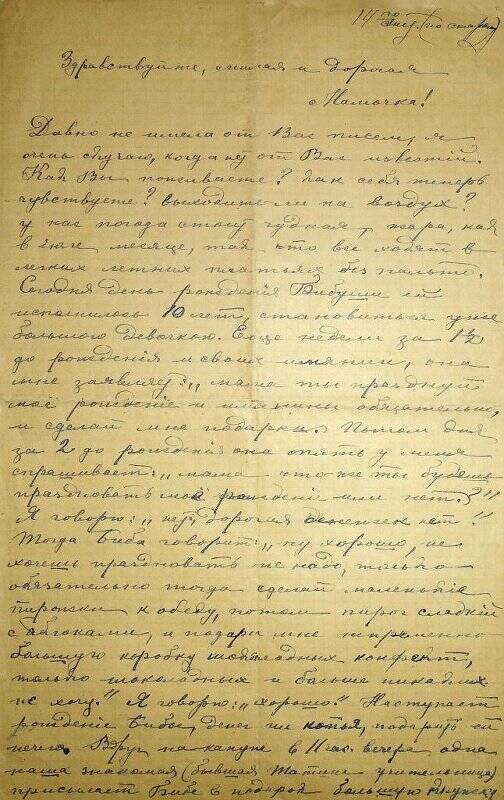 14го (по стар.)
Здравствуйте, милая и дорогая
Мамочка!
Давно не имела от Вас писем, я
очень скучаю, когда нет от Вас известий.
Как Вы поживаете? Как себя теперь
чувствуете? выходите ли на воздух?
у нас погода стоит чудная, жара, как
в июне месяце, так что все ходят в
легких летних платьях без пальто.
Сегодня день рожденiя Бибуши ей
исполнилось 10 лет, становиться уже
большою девочкою. Еще недели за 1½
до рожденiя и своих имянин, она
мне заявляет: „мама ты празднуй
моё рожденiе и имянины обязательно,
и сделай мне подарки. Потом дня
за 2 до рожденiя она опять у меня
спрашивает: „мама что же ты будешь
праздновать моё рожденiе или нет?"
Я говорю: „нет, дорогая денежек нет".
Тогда Биба говорит: „ну хорошо, не
хочешь праздновать не надо, только
обязательно тогда сделай маленькiе
пирожки к обеду, потом пирог сладкiй
с яблоками, и подари мне непременно
большую коробку шоколадных конфект,
только шоколадных и больше никаких
не хочу." Я говорю: „хорошо." Наступает
рожденiе Бибы, денег ни копья, подарить ей
нечего. Вдруг на кануне в 11 час. вечера одна
наша знакомая (бывшая Татина учительница)
присылает Бибе в подарок большую